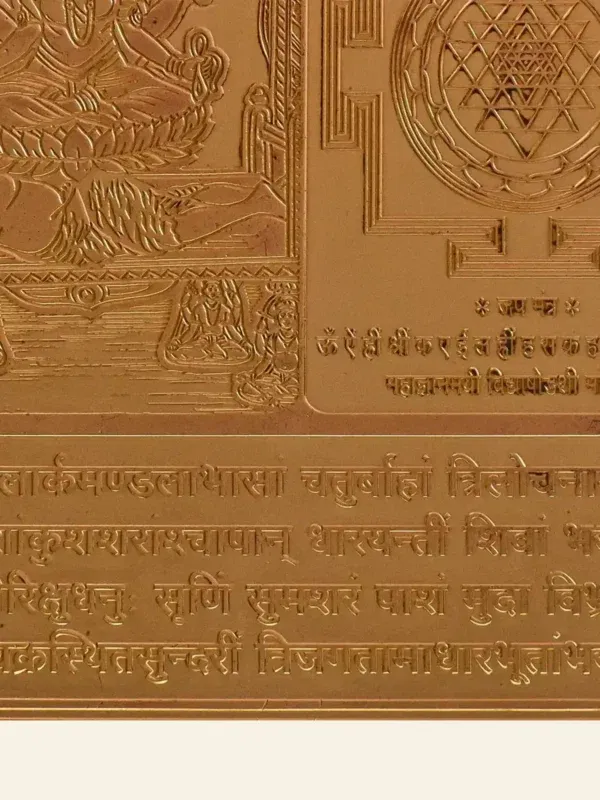 * जप मंत्र *
ॐ ऐं ह्रीं श्रीं क ए ई ल ह्रीं ह स क ह
महाज्ञानमयी विद्याषोडशी
लार्कमण्डलाभासां चतुर्बाहां त्रिलोचनाम
ाकुशशरांश्चापान् धारयन्तीं शिवां
रिक्षुधनुः सृणिं सुमशरं पाशं मुदा बिभ्र
क्रस्थितसुन्दरीं त्रिजगतामाधारभूतांभव